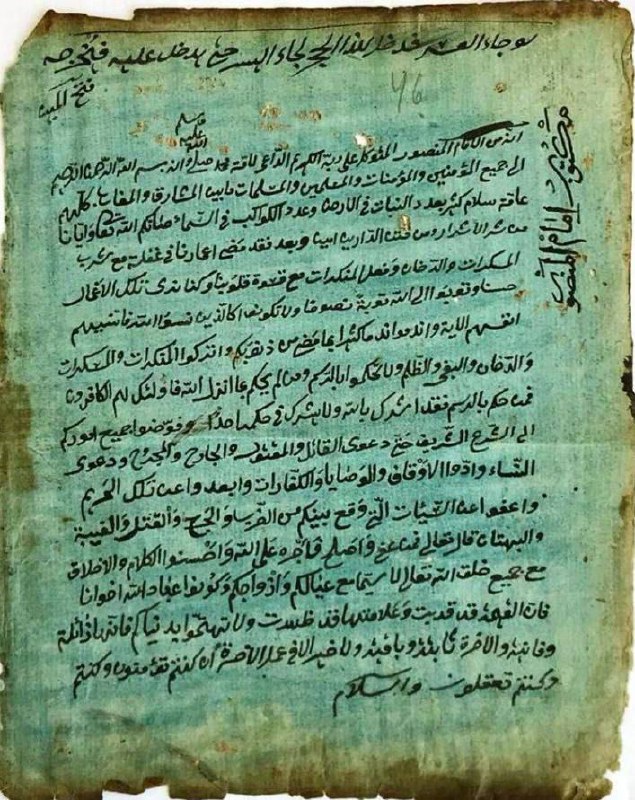 لو جاء العسر فدخل هذا الحجر لجاء اليسر حتى يدخل عليه فيخرجه
فتح
46
مكتوب إمام المنصور
الإمام المنصور المتوكل على ربه الكريم الداعي لأمة محمد صلى الله عليه وسلم بسم الله الرحمن الرحيم
الى جميع المؤمنين والمؤمنات والمسلمين والمسلمات ما بين المشارق والمغارب كلهم
عامة سلام كثير بعدد النبات في الارض وعدد الكواكب في السماء صانكم الله تعالى وايانا
من شر الاشرار ومن فتن الدارين امين وبعد فقد مضى اعمارنا في غفلة مع شرب
المسكرات والدخان وفعل المنكرات مع قسوة قلوبنا وكنا ندى تلك الاعمال
حسنا وتعبدوا الى الله توبة نصوحا ولا تكونوا كالذين نسوا الله فانسيهم
انفسهم الاية واندموا ندما كثيرا بما مضى من ذنوبكم واتركوا المنكرات والمسكرات
والدخان والبغي والظلم ولا تحكموا بالرسم ومن لم يحكم بما انزل الله فاولئك هم الكافرون
فمن حكم بالرسم فقد اشرك بالله ولا يشرك في حكمه احدا وفوضوا جميع اموركم
الى الشرع الشريف حتى دعوى القاتل والمقتول والجارح والمجروح ودعوى
النساء وادوا الاوقاف والوصايا والكفارات وابعدوا عن تلك الحريم
واعفوا عن السيئات التي وقع بينكم من الضرب والجرح والقتل والغيبة
والبهتان قال تعالى فمن عفى واصلح فاجره على الله واحسنوا الكلام والاخلاق
مع جميع خلق الله تعالى لا سيما مع عيالكم وازواجكم وكونوا عباد الله اخوانا
فان قد قربت وعلامتها قد ظهرت ولا تهتموا بدنياكم فانها زائلة
وفانية والاخرة وباقية ولا خير الا في عمل الاخرة ان كنتم تؤمنون وكنتم
وكنتم تعقلون والسلام